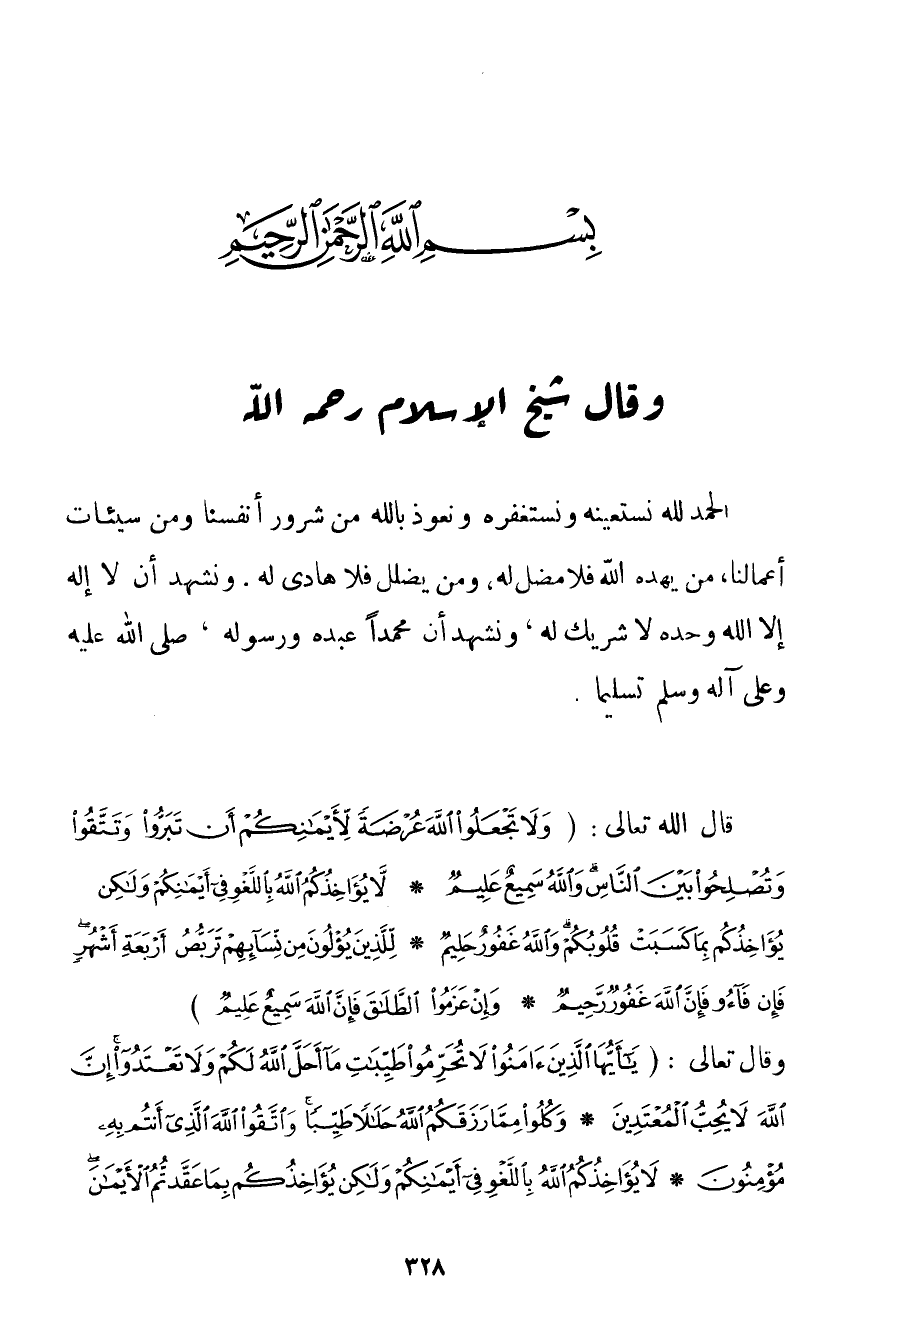 بِسْمِ ٱللَّهِ ٱلرَّحْمَٰنِ ٱلرَّحِيمِ
وقال شيخ الإسلام رحمه الله
الحمد لله نستعينه ونستغفره ونعوذ بالله من شرور أنفسنا ومن سيئات
أعمالنا، من يهده الله فلا مضل له، ومن يضلل فلا هادى له. ونشهد أن لا إله
إلا الله وحده لا شريك له، ونشهد أن محمداً عبده ورسوله، صلى الله عليه
وعلى آله وسلم تسليما.
قال الله تعالى: ( وَلَا تَجْعَلُوا۟ ٱللَّهَ عُرْضَةً لِّأَيْمَٰنِكُمْ أَن تَبَرُّوا۟ وَتَتَّقُوا۟
وَتُصْلِحُوا۟ بَيْنَ ٱلنَّاسِ ۗ وَٱللَّهُ سَمِيعٌ عَلِيمٌ * لَّا يُؤَاخِذُكُمُ ٱللَّهُ بِٱللَّغْوِ فِىٓ أَيْمَٰنِكُمْ وَلَٰكِن
يُؤَاخِذُكُم بِمَا كَسَبَتْ قُلُوبُكُمْ ۗ وَٱللَّهُ غَفُورٌ حَلِيمٌ * لِّلَّذِينَ يُؤْلُونَ مِن نِّسَآئِهِمْ تَرَبُّصُ أَرْبَعَةِ أَشْهُرٍ ۖ
فَإِن فَآءُو فَإِنَّ ٱللَّهَ غَفُورٌ رَّحِيمٌ * وَإِنْ عَزَمُوا۟ ٱلطَّلَٰقَ فَإِنَّ ٱللَّهَ سَمِيعٌ عَلِيمٌ )
وقال تعالى : ( يَٰٓأَيُّهَا ٱلَّذِينَ ءَامَنُوا۟ لَا تُحَرِّمُوا۟ طَيِّبَٰتِ مَآ أَحَلَّ ٱللَّهُ لَكُمْ وَلَا تَعْتَدُوٓا۟ ۚ إِنَّ
ٱللَّهَ لَا يُحِبُّ ٱلْمُعْتَدِينَ * وَكُلُوا۟ مِمَّا رَزَقَكُمُ ٱللَّهُ حَلَٰلًا طَيِّبًا ۚ وَٱتَّقُوا۟ ٱللَّهَ ٱلَّذِىٓ أَنتُم بِهِۦ
مُؤْمِنُونَ * لَا يُؤَاخِذُكُمُ ٱللَّهُ بِٱللَّغْوِ فِىٓ أَيْمَٰنِكُمْ وَلَٰكِن يُؤَاخِذُكُم بِمَا عَقَّدتُّمُ ٱلْأَيْمَٰنَ ۖ
٣٢٨